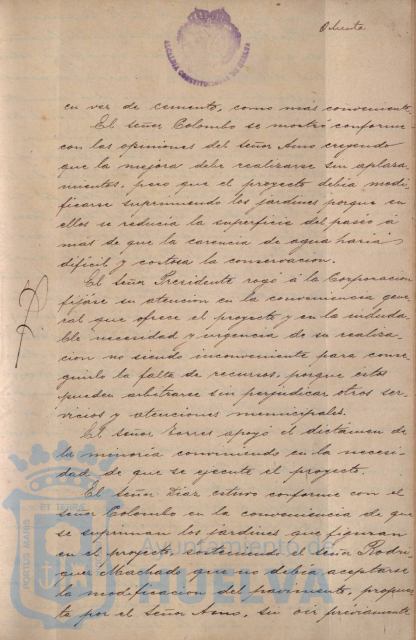 Ochenta
ALCALDIA CONSTITUCIONAL DE HUELVA
en vez de cemento, como más conveniente.
El señor Colombo se mostró conforme
con las opiniones del señor Amo creyendo
que la mejora debe realizarse sin aplaza
mientos, pero que el proyecto debia modi
ficarse suprimiendo los jardines porque en
ellos se reducia la superficie del paseo á
más de que la carencia de agua haria
dificil y costosa la conservacion.
El señor Presidente rogó á la Corporacion
fijáse su atencion en la conveniencia gene
ral que ofrece el proyecto y en la induda-
ble necesidad y urgencia de su realiza-
cion no siendo inconveniente para conse
guirlo la falta de recursos, porque éstos
pueden arbitrarse sin perjudicar otros ser
vicios y atenciones municipales.
El señor Torres apoyó el dictámen de
la memoria conviniendo en la necesi-
dad de que se ejecute el proyecto.
El señor Diaz estuvo conforme con el
señor Colombo en la conveniencia de que
se supriman los jardines que figuran
en el proyecto, sosteniendo el señor Rodri
guez Machado que no debia aceptarse
la modificacion del pavimento, propues
ta por el señor Amo, sin oir préviamente
PORTUS MARIS
Ayuntamiento de
HUELVA